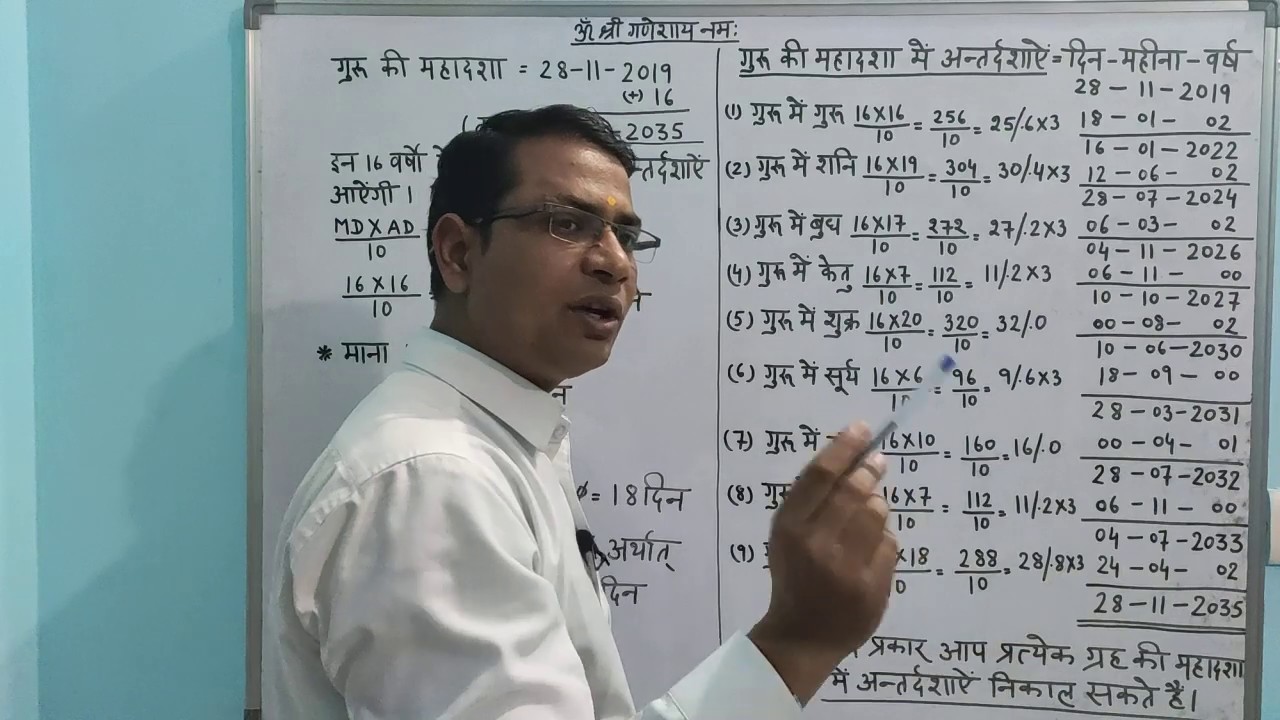 ॐ श्री गणेशाय नमः
गुरू की महादशा = 28-11-2019
(+) 16
2035
इन 16 वर्षों
न्तर्दशाऐं
आऐंगी ।
MD X AD
10
16 X 16
10
* माना
= 18 दिन
अर्थात्
दिन
गुरू की महादशा में अन्तर्दशाऐं = दिन - महीना - वर्ष
28 - 11 - 2019
(1) गुरू में गुरू 16X16/10 = 256/10 = 25/.6X3 18 - 01 - 02
16 - 01 - 2022
(2) गुरू में शनि 16X19/10 = 304/10 = 30/.4X3 12 - 06 - 02
28 - 07 - 2024
(3) गुरू में बुध 16X17/10 = 272/10 = 27/.2X3 06 - 03 - 02
04 - 11 - 2026
(4) गुरू में केतु 16X7/10 = 112/10 = 11/.2X3 06 - 11 - 00
10 - 10 - 2027
(5) गुरू में शुक्र 16X20/10 = 320/10 = 32/.0 00 - 08 - 02
10 - 06 - 2030
(6) गुरू में सूर्य 16X6/10 = 96/10 = 9/.6X3 18 - 09 - 00
28 - 03 - 2031
(7) गुरू में 16X10/10 = 160/10 = 16/.0 00 - 04 - 01
28 - 07 - 2032
(8) 16X7/10 = 112/10 = 11/.2X3 06 - 11 - 00
04 - 07 - 2033
(9) X18/10 = 288/10 = 28/.8X3 24 - 04 - 02
28 - 11 - 2035
प्रकार आप प्रत्येक ग्रह की महादशा
में अन्तर्दशाऐं निकाल सकते हैं।